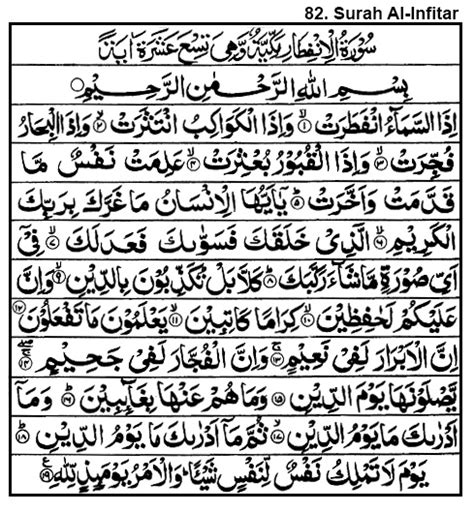 82. Surah Al-Infitar
سُوْرَةُ الْاِنْفِطَارِ مَكِّيَّةٌ وَّهِيَ تِسْعَ عَشَرَةَ اٰيَةً
بِسْمِ اللهِ الرَّحْمٰنِ الرَّحِيْمِ
اِذَا السَّمَآءُ انْفَطَرَتْ ۙ﴿۱﴾ وَاِذَا الْكَوَاكِبُ انْتَثَرَتْ ۙ﴿۲﴾ وَاِذَا الْبِحَارُ
فُجِّرَتْ ۙ﴿۳﴾ وَاِذَا الْقُبُوْرُ بُعْثِرَتْ ۙ﴿۴﴾ عَلِمَتْ نَفْسٌ مَّا
قَدَّمَتْ وَاَخَّرَتْ ﴿۵﴾ يٰۤاَيُّهَا الْاِنْسَانُ مَا غَرَّكَ بِرَبِّكَ
الْكَرِيْمِ ۙ﴿۶﴾ الَّذِيْ خَلَقَكَ فَسَوّٰىكَ فَعَدَلَكَ ۙ﴿۷﴾ فِيْۤ
اَيِّ صُوْرَةٍ مَّا شَآءَ رَكَّبَكَ ﴿۸﴾ كَلَّا بَلْ تُكَذِّبُوْنَ بِالدِّيْنِ ۙ﴿۹﴾ وَاِنَّ
عَلَيْكُمْ لَحٰفِظِيْنَ ۙ﴿۱۰﴾ كِرَامًا كَاتِبِيْنَ ۙ﴿۱۱﴾ يَعْلَمُوْنَ مَا تَفْعَلُوْنَ ﴿۱۲﴾
اِنَّ الْاَبْرَارَ لَفِيْ نَعِيْمٍ ۚ﴿۱۳﴾ وَاِنَّ الْفُجَّارَ لَفِيْ جَحِيْمٍ ﴿۱۴﴾
يَّصْلَوْنَهَا يَوْمَ الدِّيْنِ ﴿۱۵﴾ وَمَا هُمْ عَنْهَا بِغَآئِبِيْنَ ﴿۱۶﴾ وَمَاۤ
اَدْرٰىكَ مَا يَوْمُ الدِّيْنِ ۙ﴿۱۷﴾ ثُمَّ مَاۤ اَدْرٰىكَ مَا يَوْمُ الدِّيْنِ ﴿۱۸﴾
يَوْمَ لَا تَمْلِكُ نَفْسٌ لِّنَفْسٍ شَيْئًا ؕ وَالْاَمْرُ يَوْمَئِذٍ لِّلّٰهِ ﴿۱۹﴾